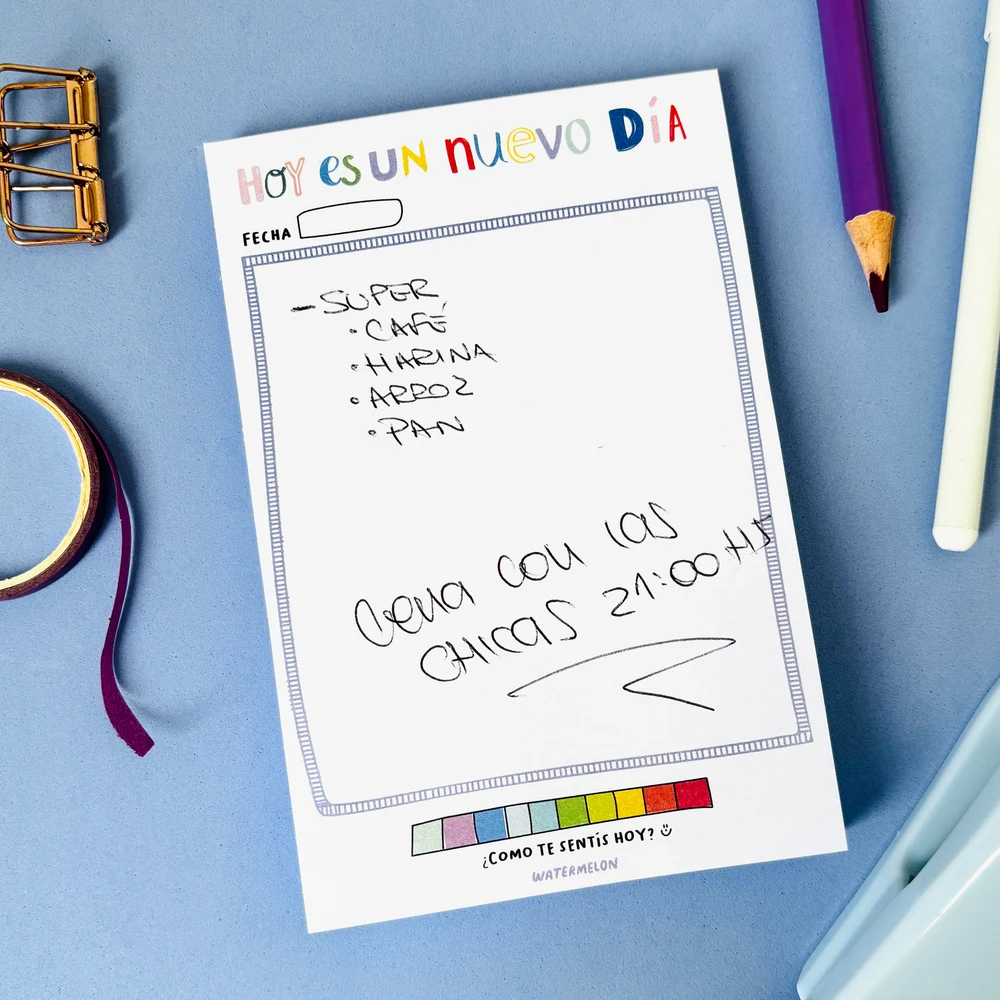 HOY ES UN NUEVO DÍA
FECHA
- SUPER
• CAFÉ
• HARINA
• ARROZ
• PAN
Cena con las
CHICAS 21:00 HS
¿COMO TE SENTÍS HOY?
WATERMELON